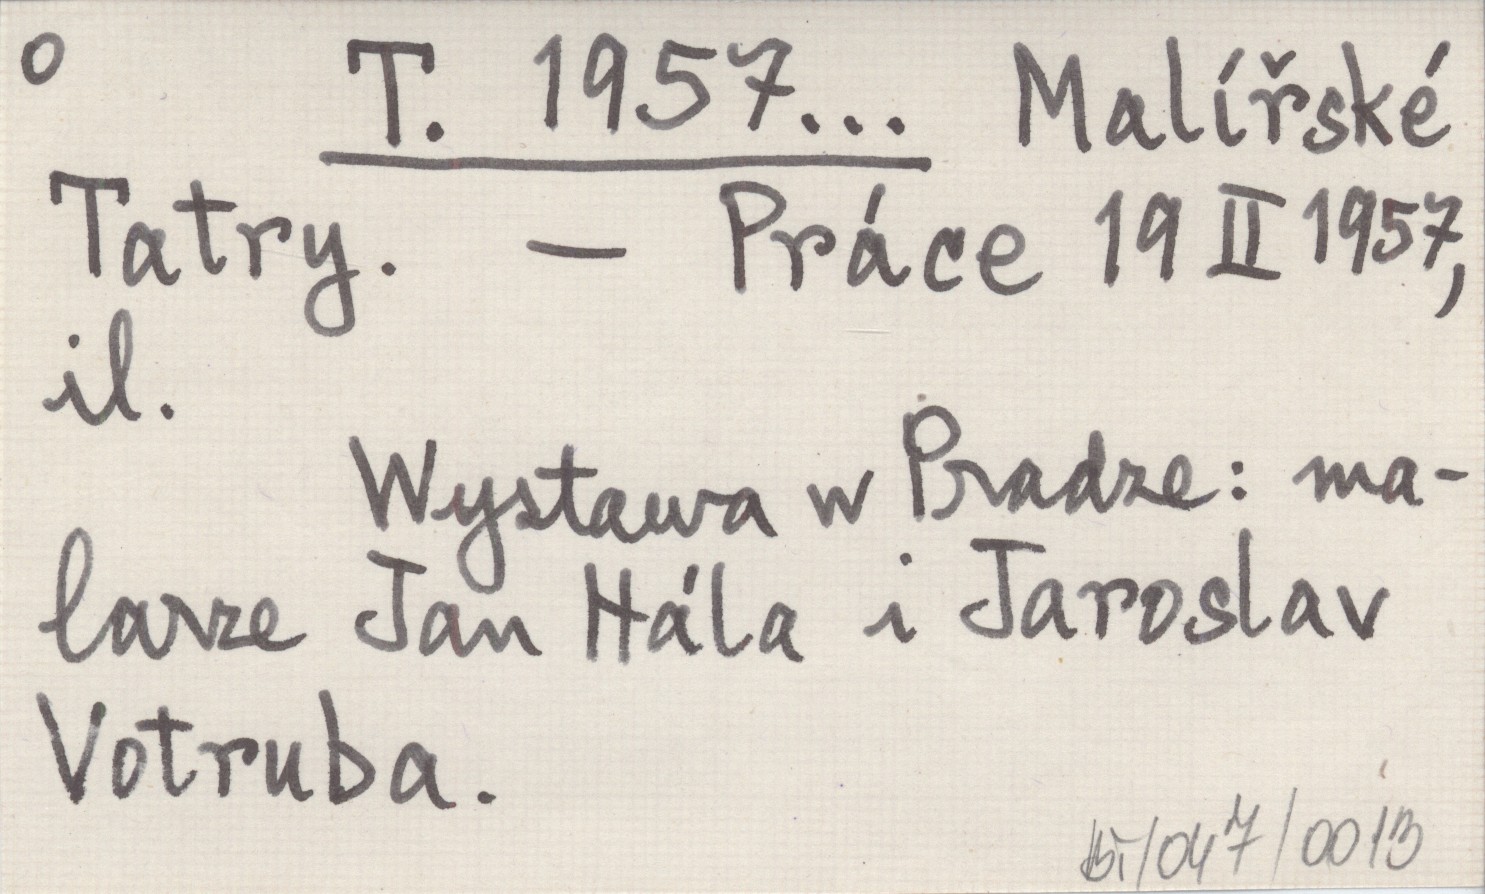 o T. 1957... Malířské
Tatry. — Práce 19 II 1957,
il.
Wystawa w Pradze: ma-
larze Jan Hála i Jaroslav
Votruba.
/047/0013